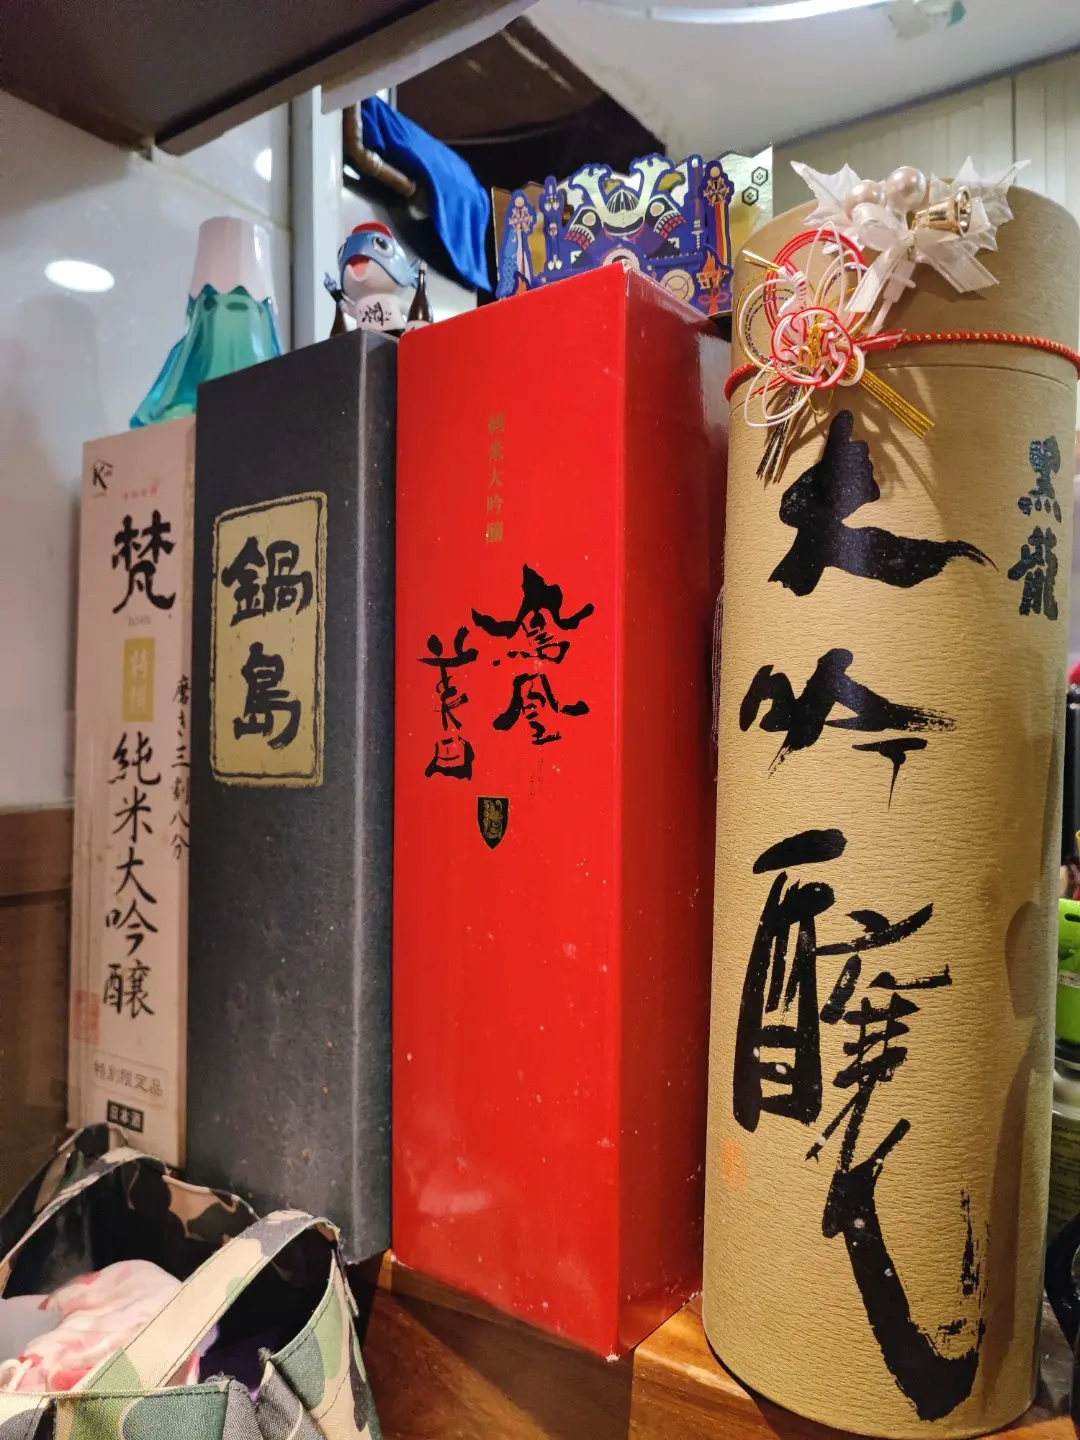 梵
BORN
特撰
純米大吟醸
磨き三割八分
特別限定品
日本酒
鍋島
純米大吟醸
鳳凰
美田
黒龍
大吟醸